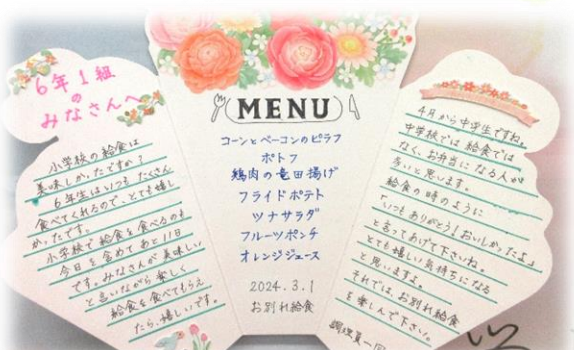 6年1組
の
みなさんへ
小学校の給食は
美味しかったですか？
6年生はいつもたくさん
食べてくれるので、とても嬉し
かったです。
小学校で給食を食べるのも
今日を含めてあと11日
です。みなさんが美味しい
と言いながら楽しく
給食を食べてもらえ
たら、嬉しいです。
MENU
コーンとベーコンのピラフ
ポトフ
鶏肉の竜田揚げ
フライドポテト
ツナサラダ
フルーツポンチ
オレンジジュース
2024.3.1
お別れ給食
4月から中学生ですね。
中学校では給食では
なく、お弁当になる人が
多いと思います。
給食の時のように
「いつもありがとう!おいしかったよ」
と言ってあげて下さいね。
とても嬉しい気持ちになる
と思いますよ。
それでは、お別れ給食
を楽しんで下さい。
調理員一同